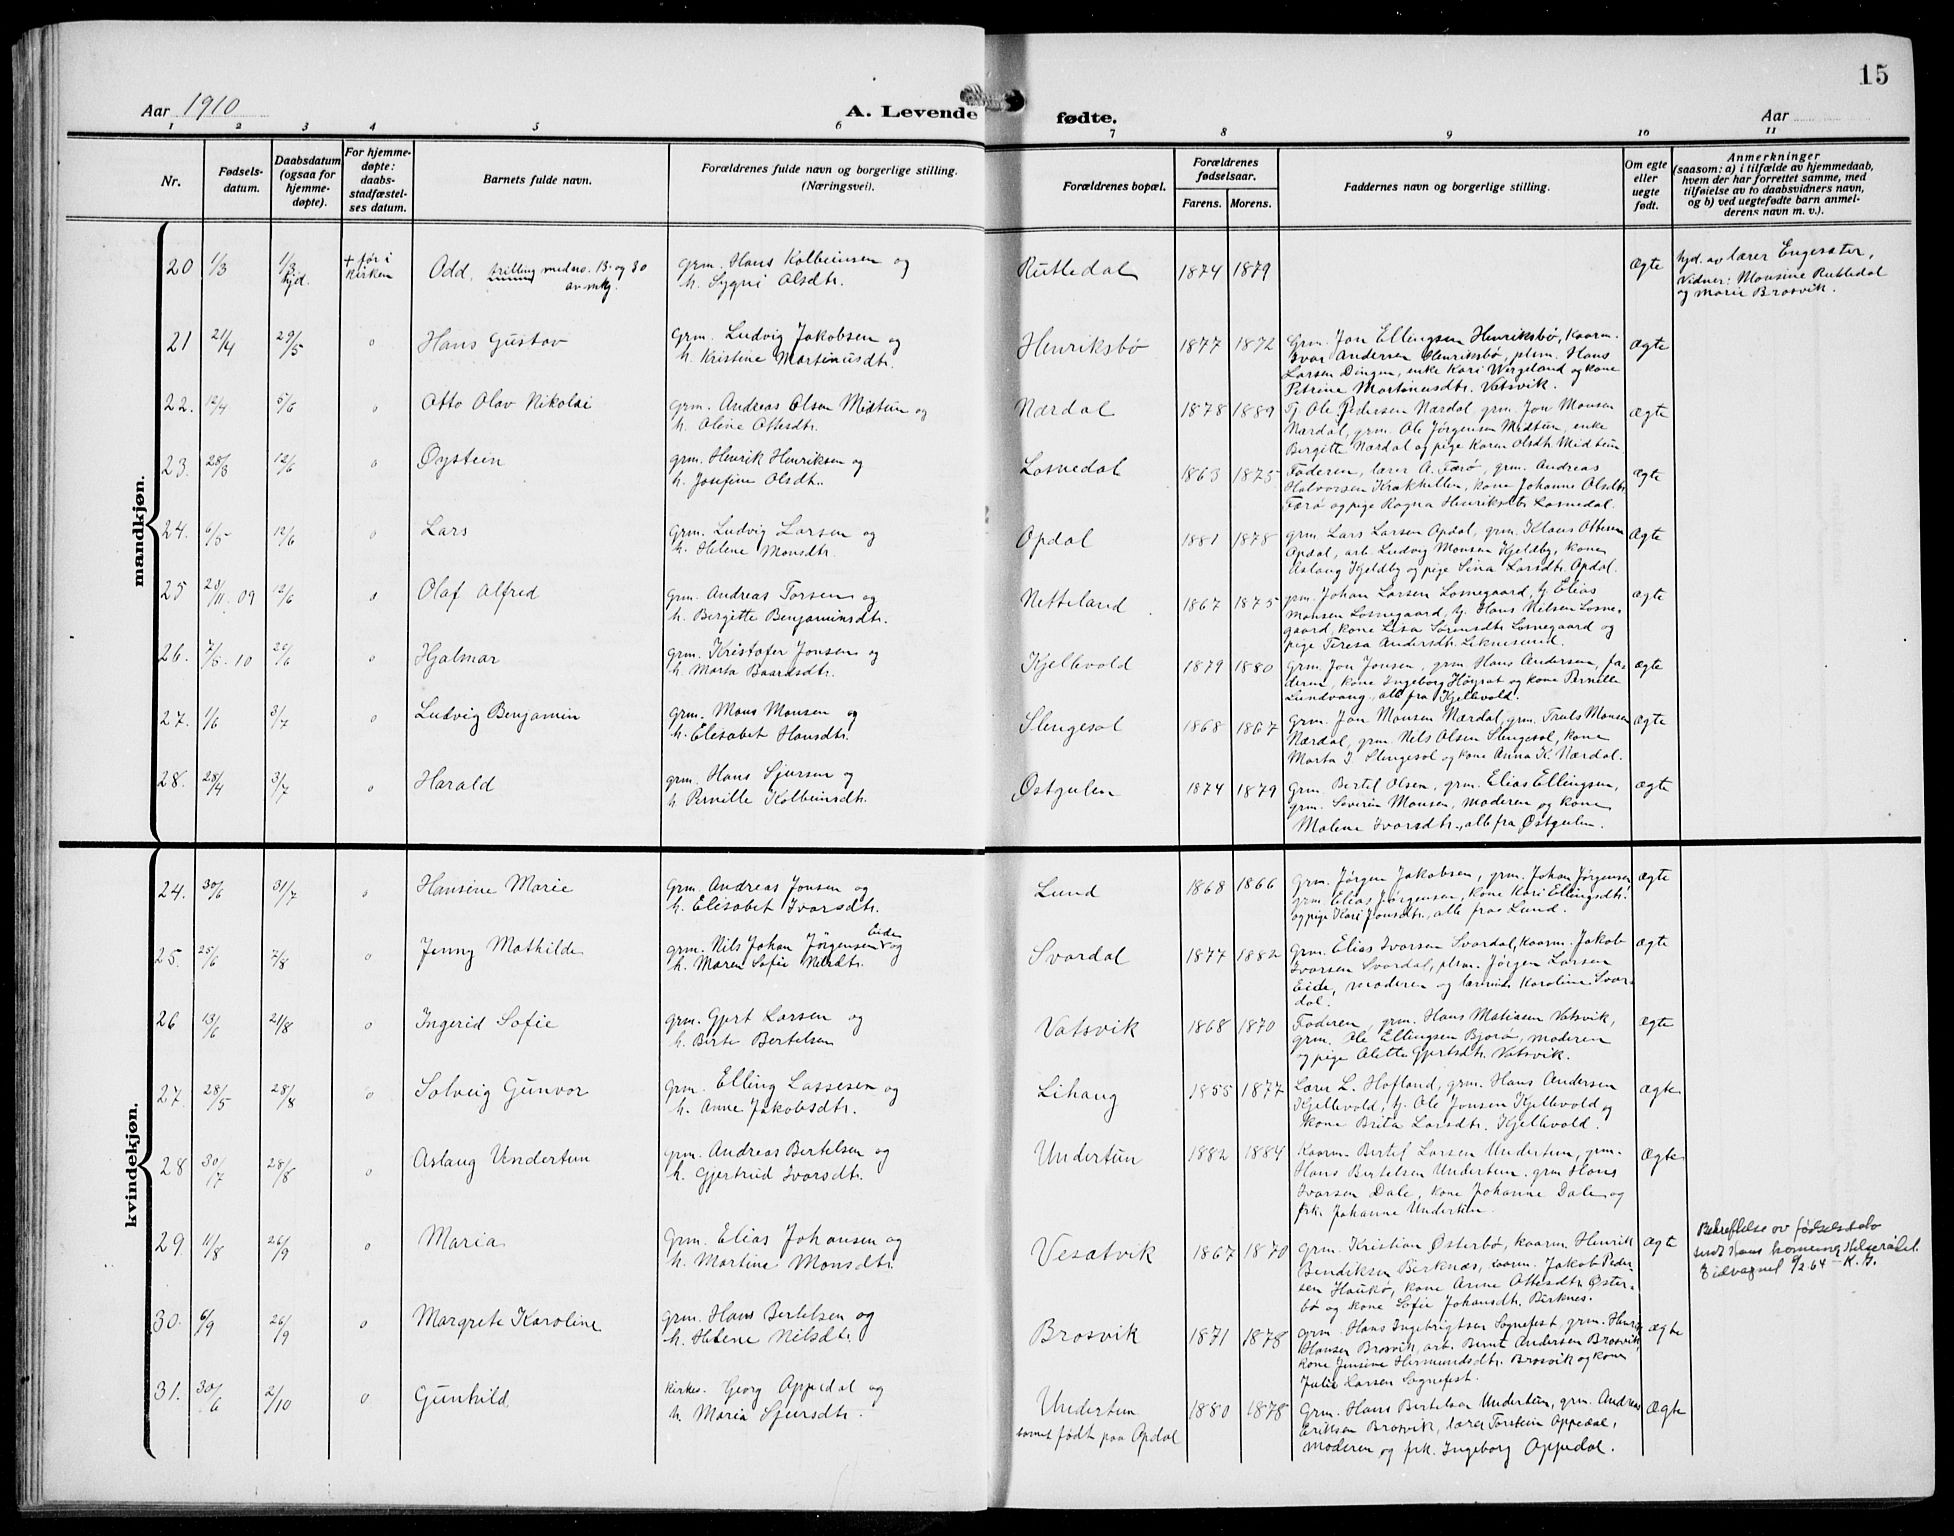 15
Aar 1910
A. Levende fødte.
Aar
1 2 3 4 5 6 7 8 9 10 11
Nr.
Fødsels-
datum.
Daabsdatum
(ogsaa for
hjemme-
døpte).
For hjemme-
døpte:
daabs-
stadfæstel-
ses datum.
Barnets fulde navn.
Forældrenes fulde navn og borgerlige stilling.
(Næringsvei).
Forældrenes bopæl.
Forældrenes
fødselsaar.
Farens. Morens.
Faddernes navn og borgerlige stilling.
Om egte
eller
uegte
født.
Anmerkninger
(saasom: a) i tilfælde av hjemmedaab,
hvem der har forrettet samme, med
tilføielse av to daabsvidners navn,
og b) ved uegtefødte barn anmel-
derens navn m. v.).
mandkjøn.
20 1/3 1/3 hjd. + før i kirken
Odd. trilling med no. 13 og 30
grm. Hans Kolbeinsen og
h. Sygni Olsdtr.
Rutledal 1874 1879
ægte
hjd. av lærer Engesæter,
Vidner: Monsine Rutledal
og Marie Brosvik.
21 21/4 29/5 o
Hans Gustav
Grm. Ludvig Jakobsen og
h. Kristine Martinusdtr.
Henriksbø 1877 1872
Grm. Jon Ellingsen Henriksbø, kaarm.
Ivar Andersen Henriksbø, plsm. Hans
Larsen Dingen, enke Kari Wergeland og kone
Petrine Martinusdtr. Vatsvik.
ægte
22. 12/4 5/6 o
Otto Olav Nikolai
grm. Andreas Olson Midtun og
h. Oline Ottesdtr.
Nærdal 1878 1889
Tj. Ole Pedersen Nærdal, grm. Jon Monsen
Nærdal, grm. Ole Jørgensen Midtun, enke
Birgitte Nærdal og pige Karen Olsdtr Midtun
ægte
23. 28/3 12/6 o
Øystein
grm. Henrik Henriksen og
h. Josefine Olsdtr.
Losnedal 1863 1875
Faderen, lærer A. Færø, grm. Andreas
Halvorsen Krakhellen, kone Johanne Olsdtr
Færø og pige Ragna Henriksdtr Losnedal.
ægte
24. 6/5 12/6 o
Lars
grm. Ludvig Larsen og
h. Helene Monsdtr.
Opdal 1881 1878
grm. Lars Larsen Opdal, grm Klaus Ottesen
Opdal, arb. Ludvig Monsen Kjeldby, kone
Aslaug Kjeldby og pige Sina Larsdtr. Opdal.
Ægte
25 23/11 09 12/6 o
Olaf Alfred
grm. Andreas Torsen og
h. Bergitte Benjaminsdtr.
Netteland 1867 1875
grm. Johan Larsen Losnegaard, tj. Elias
Monsen Losnegaard, tj. Hans Nilsen Losne-
gaard, kone Lisa Sørensdtr Losnegaard og
pige Teresa Andersdtr. Leknesund.
ægte
26. 7/5 10 26/6 o
Hjalmar
grm. Kristofer Jonsen og
h. Marta Baardsdtr.
Kjellevold 1879 1880
Grm. Jon Jonsen, grm. Hans Andersen, fa-
deren, kone Ingeborg Høyrat og kone Pernille
Lundvang, alle fra Kjellevold.
ægte
27. 1/6 3/7 o
Ludvig Benjamin
grm. Mons Monsen og
h. Elisabet Hansdtr.
Slengesol 1868 1867
Grm. Jon Monsen Nærdal, grm. Truls Monsen
Nærdal, grm Nils Olsen Slengesol, kone
Marta I. Slengesol og kone Anna K. Nærdal.
ægte
28. 28/4 3/7 o
Harald
grm. Hans Sjursen og
h Pernille Kolbeinsdtr.
Østgulen 1874 1879
Grm. Bertel Olsen, grm. Elias Ellingsen,
grm. Severin Monsen, moderen og kone
Malene Ivarsdtr., alle fra Østgulen.
ægte
kvindekjøn.
24. 30/6 31/7 o
Hansine Marie
Grm. Andreas Jonsen og
h. Elisabet Ivarsdtr.
Lund 1868 1866
Grm. Jørgen Jakobsen, grm. Johan Jørgensen,
grm. Elias Jørgensen, kone Kari Ellingsdtr.
og pige Kari Jonsdtr., alle fra Lund.
ægte
25. 25/6 7/8 o
Jenny Mathilde
grm. Nils Johan Jørgensen Eide og
h. Maren Sofie Nilsdtr.
Svardal 1877 1882
Grm. Elias Ivarsen Svardal, kaarm. Jakob
Ivarsen Svardal, plsm. Jørgen Larsen
Eide, moderen og lærerinde Karoline Svar-
dal.
ægte
26 13/6 21/8 o
Ingerid Sofie
grm. Gjert Larsen og
h. Birte Bertelsen
Vatsvik 1868 1870
Faderen, grm. Hans Matiasen Vatsvik,
grm. Ole Ellingsen Bjorø, moderen
og pige Alette Gjertsdtr. Vatsvik.
ægte
27. 28/5 28/8 o
Solveig Gunvor
Grm. Elling Lassesen og
h. Anne Jakobsdtr.
Lihaug 1855 1877
Lærer L. Hofland, grm. Hans Andersen
Kjellevold, tj. Ole Jonsen Kjellevold og
kone Brita Larsdtr. Kjellevold.
ægte
28 30/7 28/8 o
Aslaug Undertun
grm. Andreas Bertelsen og
h. Gjertrud Ivarsdtr.
Undertun 1882 1884
Kaarm. Bertel Larsen Undertun, grm.
Hans Bertelsen Undertun, grm Hans
Ivarsen Dale, kone Johanne Dale og
frk. Johanne Undertun.
Ægte
29 11/8 26/9 o
Maria
Grm. Elias Johansen og
h. Martine Monsdtr.
Vesatvik 1867 1870
grm. Kristian Østerbø, kaarm. Henrik
Bendiksen Birknes, kaarm. Jakob Peder-
sen Haukø, kone Anne Ottesdtr. Øster-
bø og kone Sofie Johansdtr. Birknes.
Ægte
Bekreftelse av fødselsdato
30. 6/9 26/9 o
Margrete Karoline
grm. Hans Bertelsen og
h. Helene Nilsdtr.
Brosvik 1871 1878
grm. Hans Ingebrigtsen Sognefest, grm. Henrik
Hansen Brosvik, arb. Bernt Andersen Brosvik,
kone Jensine Hermundsdtr. Brosvik og kone
Julie Larsen Sognefest.
Ægte
31. 30/6 2/10 o
Gunhild
kirkes. Georg Appedal og
h. Maria Sjursdtr.
Undertun
barnet født paa Opdal
1880 1878
Grm. Hans Bertelsen Undertun, grm. Andreas
Eriksen Brosvik, lærer Torstein Appedal,
moderen og frk. Ingeborg Appedal.
Ægte